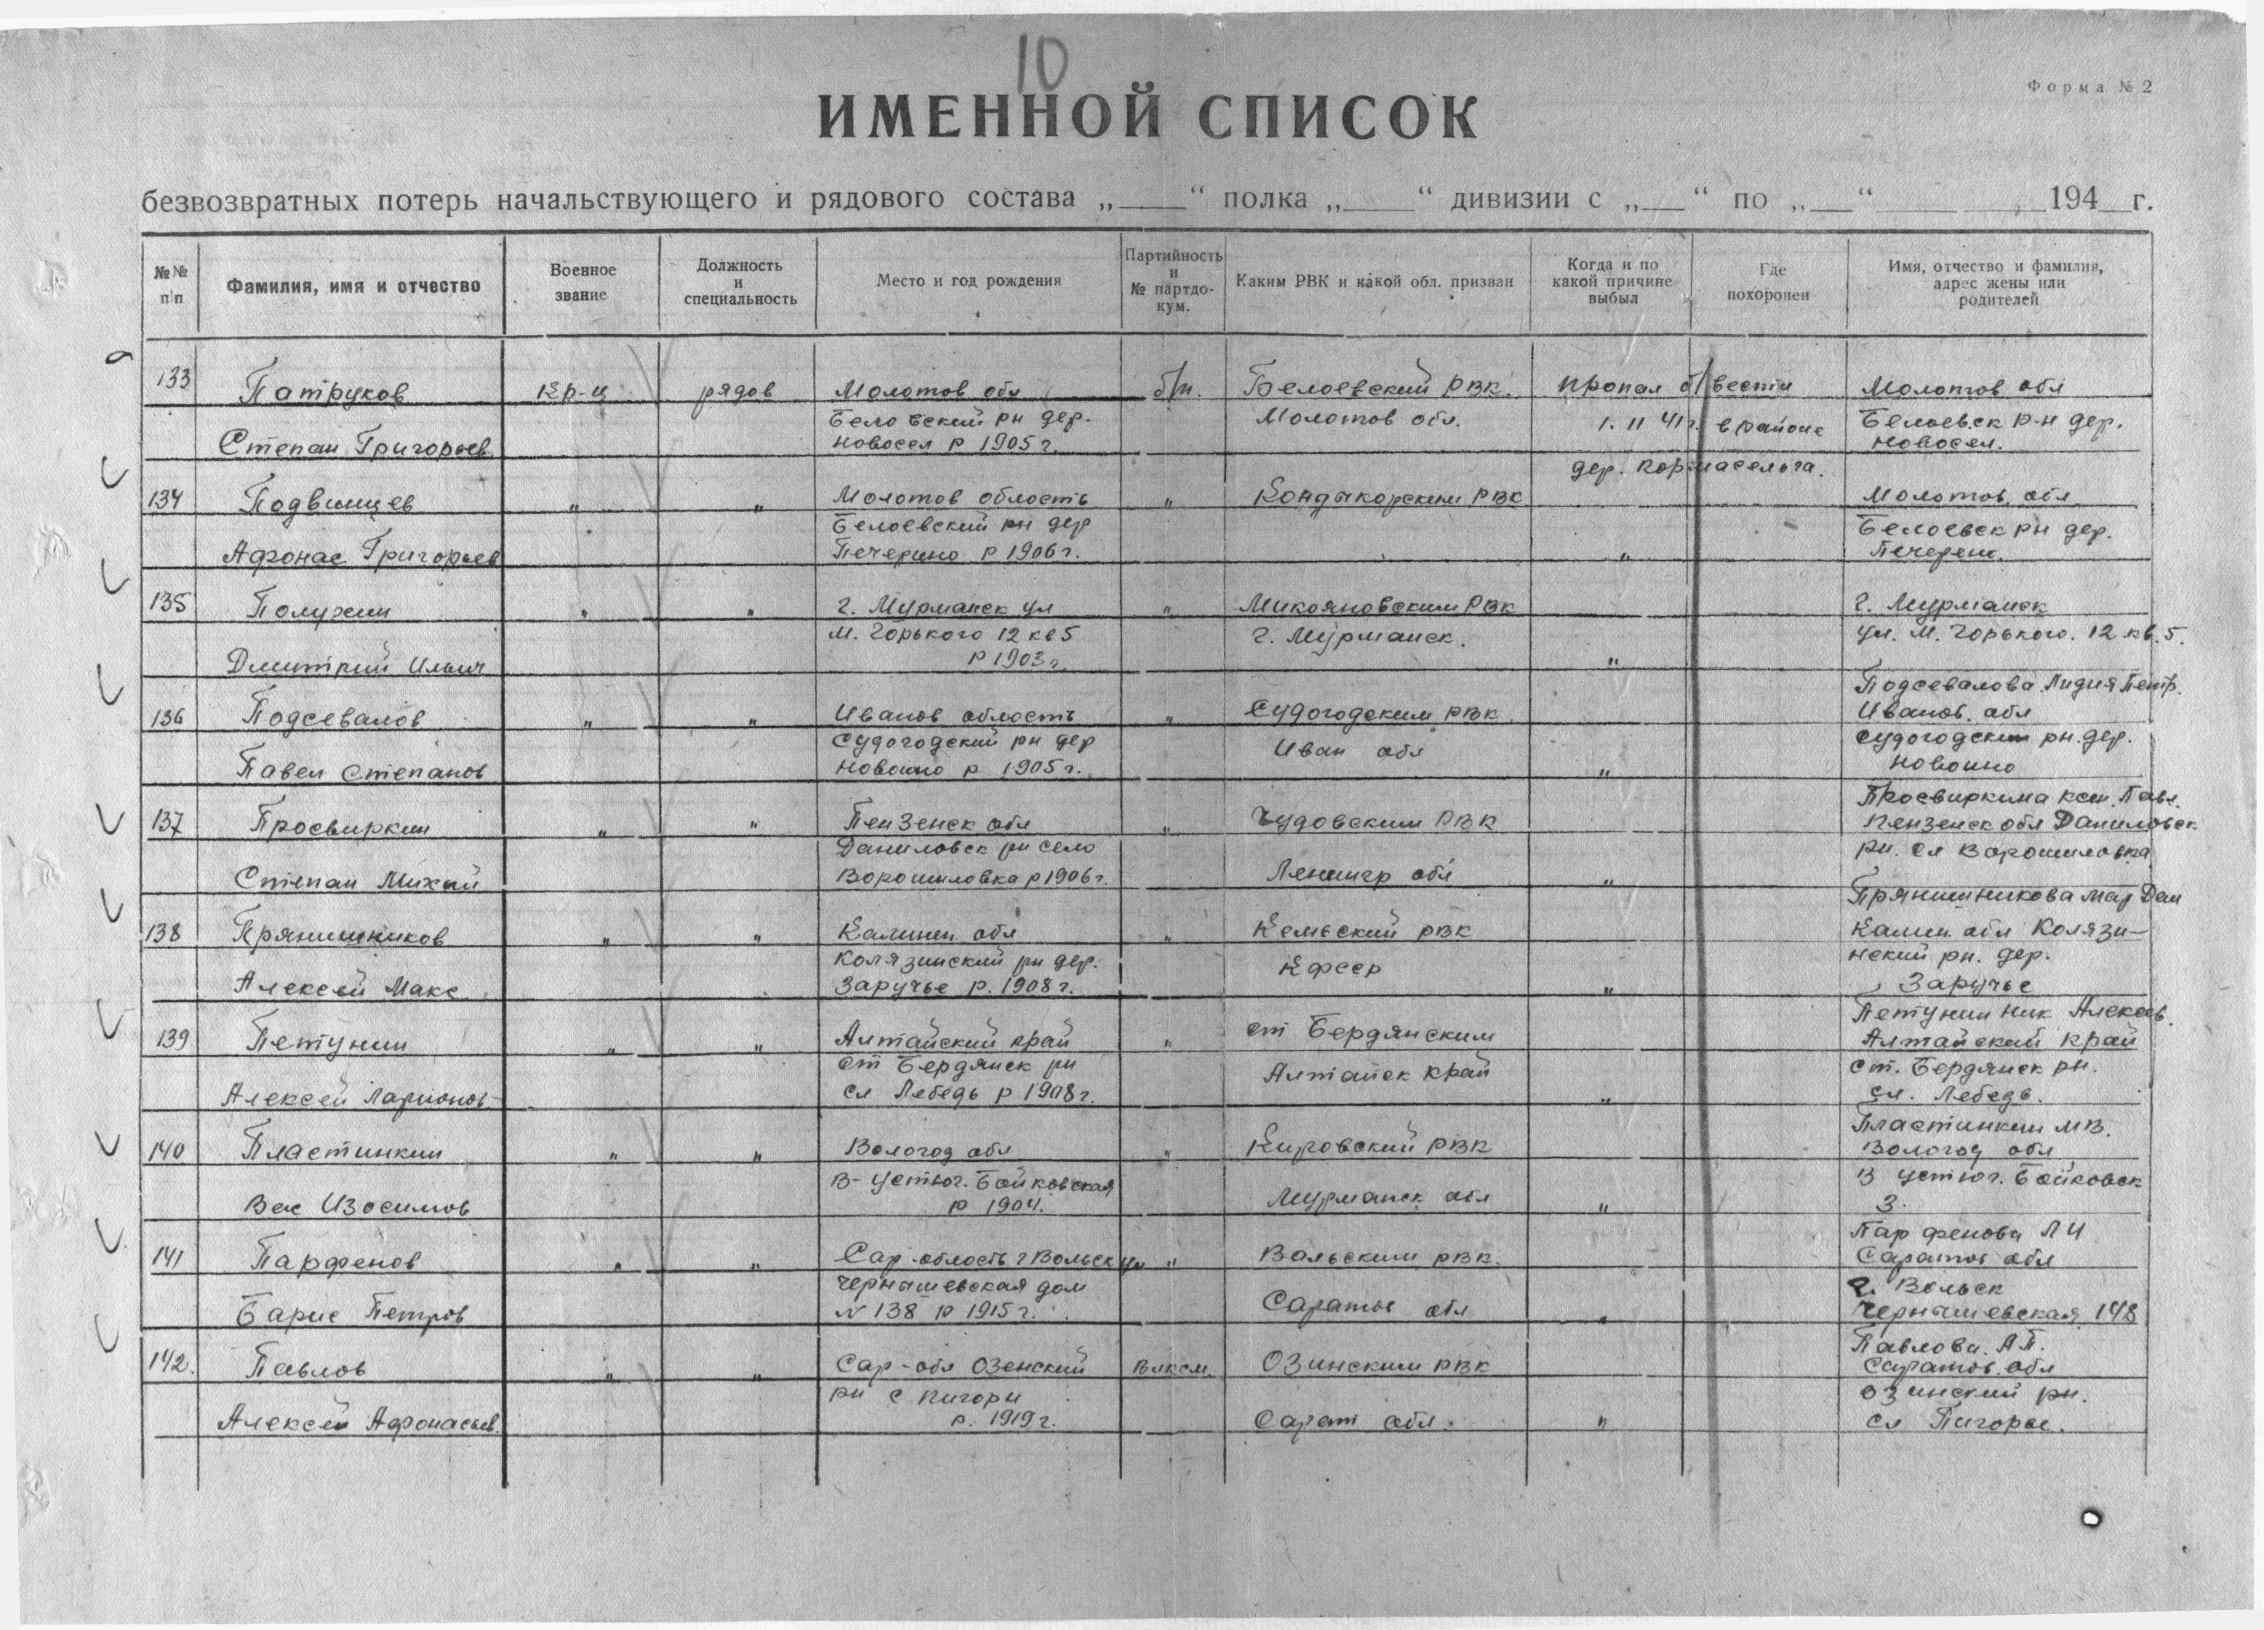 10
Форма № 2
ИМЕННОЙ СПИСОК
безвозвратных потерь начальствующего и рядового состава „____“ полка „____“ дивизии с „___“ по „___“ ________ 194__г.
№№ п/п
Фамилия, имя и отчество
Военное звание
Должность и специальность
Место и год рождения
Партийность и № партдо-кум.
Каким РВК и какой обл. призван
Когда и по какой причине выбыл
Где похоронен
Имя, отчество и фамилия, адрес жены или родителей
133 Патруков кр-ц рядов Молотов обл б/п. Белоевский РВК. пропал б/вести Молотов обл
Бело вский рн дер. Молотов обл. 1. 11 41 г. в районе Белоевск р-н дер.
Степан Григорьев новосел р 1905 г. новосел.
дер. Кормасельга.
134 Подвинцев " " Молотов область " РВК Молотов обл
Белоевский рн дер Белоевск рн дер.
Афонас Григорьев Печерино р 1906 г. "
135 " " г. Мурманск ул " Микояновским РВК г. Мурманск
М. Горького 12 кв 5 г. Мурманск. ул. М. Горького. 12 кв. 5.
Дмитрий Ильич р 1903 г. "
Подсевалова Лидия Петр.
136 Подсевалов " " Иванов область " Судогодским РВК Иванов. обл
Судогодский рн дер Иван обл Судогодским рн. дер.
Павел Степанов р 1905 г. "
Просвиркина Ксен. Павл.
137 Просвиркин " " Пензенск обл " Чудовским РВК Пензенск обл Даниловск
Даниловск рн село рн. сл Ворошиловка
Степан Ворошиловка р 1906 г. Ленингр обл "
Прянишникова Мар Дан
138 Прянишников " " Калинин обл " Кемьский РВК Калин. обл Колязи-
Колязинский рн дер. Кфсср нский рн. дер.
Алексей Макс Заручье р. 1908 г. " Заручье
Петунин Ник Алексев.
139 Петунин " " Алтайский край " ст Бердянским Алтайский край
ст Бердянск рн Алтайск край ст. Бердянск рн.
Алексей Ларионов сл Лебедь р 1908 г. " сл. Лебедь.
Пластинкин МВ.
140 Пластинкин " " Вологод обл " Кировский РВК Вологод обл
В- Устюг. Бойковская Мурманск обл В Устюг. Бойковск
Вас Изосимов р 1904. " 3.
Парфенова Л И
141 Парфенов " " Сар-область г Вольск ул " Вольским РВК. Саратов обл
Чернышевская дом г. Вольск
Барис Петров № 138 р 1915 г. Саратов обл " Чернышевская 148
Павлова. А П.
142. Павлов " " Сар-обл Озенский Влксм. Озинским РВК Саратов. обл
рн с Пигоры Озинский рн.
Алексей Афонасьев. р. 1919 г. Сарат обл. " сл Пигоры.